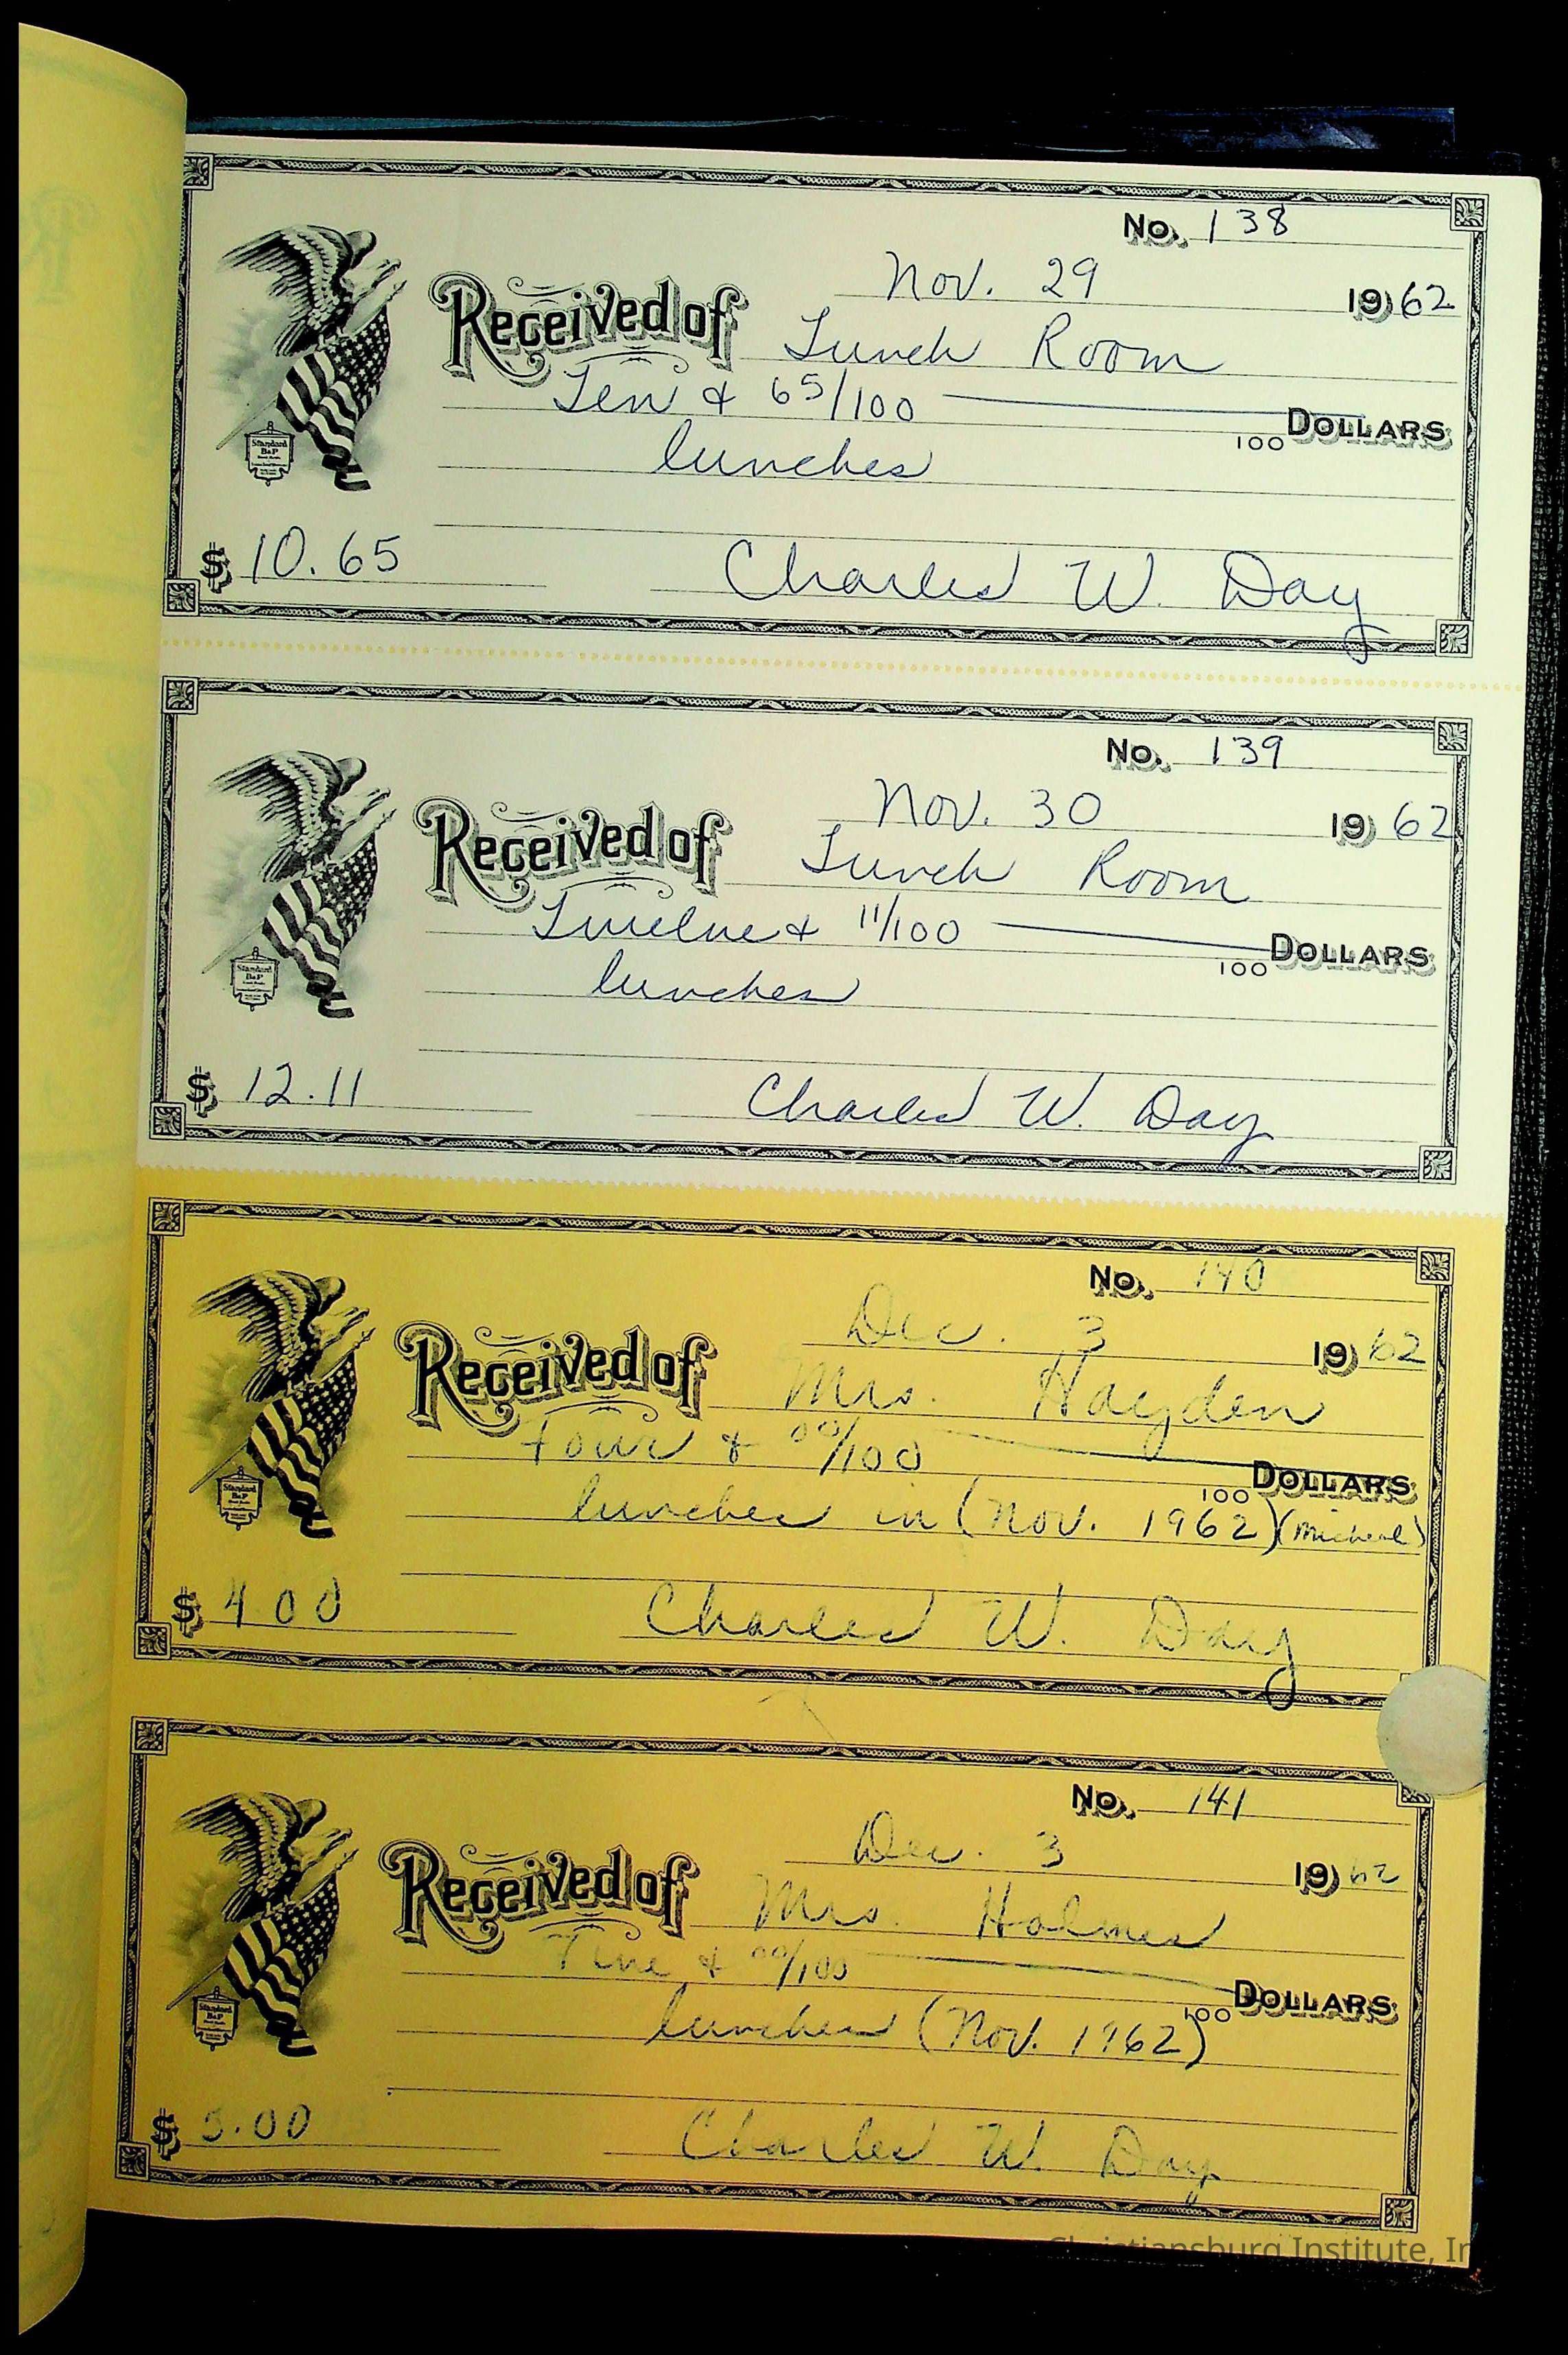 No. 138
Nov. 29 1962
Received of Lunch Room
Ten & 65/100 100 DOLLARS
lunches
$ 10.65 Charles W. Day
Standard B&P
No. 139
Nov. 30 1962
Received of Lunch Room
Twelve & 11/100 100 DOLLARS
lunches
$ 12.11 Charles W. Day
Standard B&P
No. 140
Dec. 3 1962
Received of Mrs. Hayden
Four & 00/100 100 DOLLARS
lunches in (Nov. 1962) (Micheal)
$ 4 00 Charles W. Day
Standard B&P
No. 141
Dec. 3 1962
Received of Mrs. Holmes
Five & 00/100 100 DOLLARS
lunches (Nov. 1962)
$ 5.00 Charles W. Day
Standard B&P
Christiansburg Institute, In